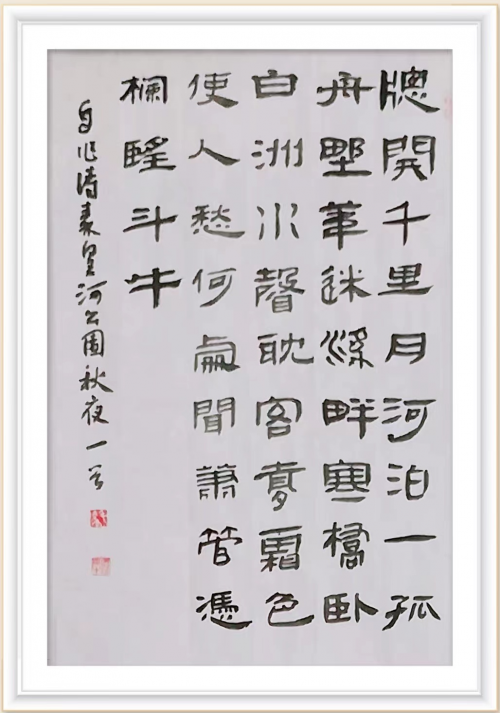 牕開千里月河泊一孤
舟野草迷畔寒橋卧
白洲水聲耽客夢霜色
使人愁何處聞蕭管憑
欄斗牛
自作詩秦皇河公園秋夜一首